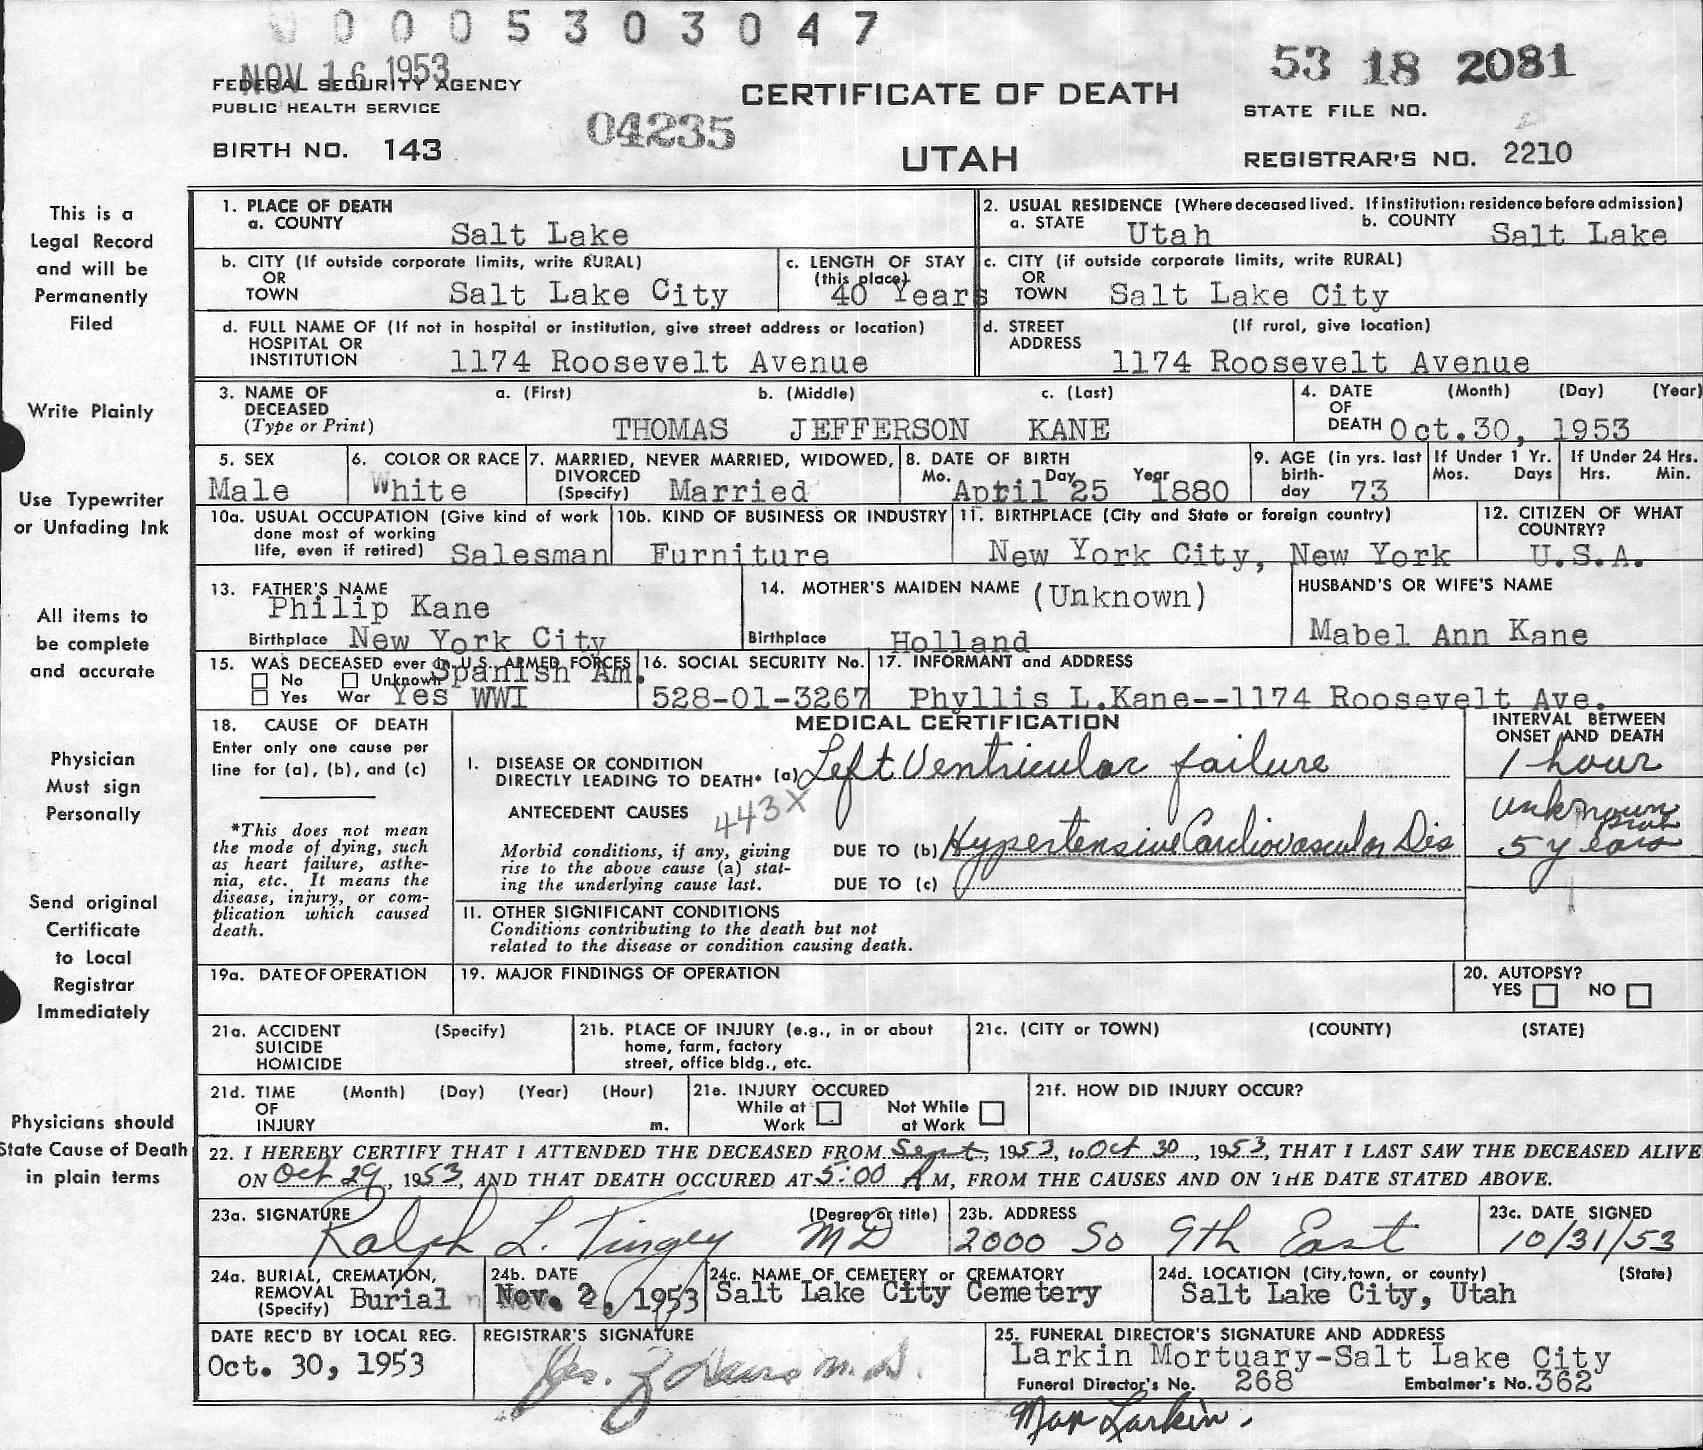 0 0 0 5 3 0 3 0 4 7
NOV 16 1953
53 18 2081
FEDERAL SECURITY AGENCY
PUBLIC HEALTH SERVICE
CERTIFICATE OF DEATH
STATE FILE NO.
04235
BIRTH NO. 143
UTAH
REGISTRAR'S NO. 2210
This is a
Legal Record
and will be
Permanently
Filed
Write Plainly
Use Typewriter
or Unfading Ink
All items to
be complete
and accurate
Physician
Must sign
Personally
Send original
Certificate
to Local
Registrar
Immediately
Physicians should
State Cause of Death
in plain terms
1. PLACE OF DEATH
a. COUNTY Salt Lake
2. USUAL RESIDENCE (Where deceased lived. If institution: residence before admission)
a. STATE Utah b. COUNTY Salt Lake
b. CITY (If outside corporate limits, write RURAL)
OR
TOWN Salt Lake City
c. LENGTH OF STAY
(this place)
40 Years
c. CITY (if outside corporate limits, write RURAL)
OR
TOWN Salt Lake City
d. FULL NAME OF (If not in hospital or institution, give street address or location)
HOSPITAL OR
INSTITUTION 1174 Roosevelt Avenue
d. STREET (If rural, give location)
ADDRESS 1174 Roosevelt Avenue
3. NAME OF a. (First) b. (Middle) c. (Last)
DECEASED
(Type or Print) THOMAS JEFFERSON KANE
4. DATE (Month) (Day) (Year)
OF
DEATH Oct.30, 1953
5. SEX
Male
6. COLOR OR RACE
White
7. MARRIED, NEVER MARRIED, WIDOWED,
DIVORCED
(Specify) Married
8. DATE OF BIRTH
Mo. Day Year
April 25 1880
9. AGE (in yrs. last
birth-
day 73
If Under 1 Yr.
Mos. Days
If Under 24 Hrs.
Hrs. Min.
10a. USUAL OCCUPATION (Give kind of work
done most of working
life, even if retired) Salesman
10b. KIND OF BUSINESS OR INDUSTRY
Furniture
11. BIRTHPLACE (City and State or foreign country)
New York City, New York
12. CITIZEN OF WHAT
COUNTRY?
U.S.A.
13. FATHER'S NAME
Philip Kane
Birthplace New York City
14. MOTHER'S MAIDEN NAME (Unknown)
Birthplace Holland
HUSBAND'S OR WIFE'S NAME
Mabel Ann Kane
15. WAS DECEASED ever in U.S. ARMED FORCES
No Unknown Spanish Am.
Yes War Yes WWI
16. SOCIAL SECURITY No.
528-01-3267
17. INFORMANT and ADDRESS
Phyllis L.Kane--1174 Roosevelt Ave.
18. CAUSE OF DEATH
Enter only one cause per
line for (a), (b), and (c)
*This does not mean
the mode of dying, such
as heart failure, asthe-
nia, etc. It means the
disease, injury, or com-
plication which caused
death.
MEDICAL CERTIFICATION
INTERVAL BETWEEN
ONSET AND DEATH
I. DISEASE OR CONDITION
DIRECTLY LEADING TO DEATH* (a) Left Ventricular failure
1 hour
ANTECEDENT CAUSES
443X
unknown
Morbid conditions, if any, giving
rise to the above cause (a) stat-
ing the underlying cause last.
DUE TO (b) Hypertensive Cardiovascular Dis
5 years
DUE TO (c)
II. OTHER SIGNIFICANT CONDITIONS
Conditions contributing to the death but not
related to the disease or condition causing death.
19a. DATE OF OPERATION
19. MAJOR FINDINGS OF OPERATION
20. AUTOPSY?
YES NO
21a. ACCIDENT (Specify)
SUICIDE
HOMICIDE
21b. PLACE OF INJURY (e.g., in or about
home, farm, factory
street, office bldg., etc.
21c. (CITY or TOWN) (COUNTY) (STATE)
21d. TIME (Month) (Day) (Year) (Hour)
OF
INJURY m.
21e. INJURY OCCURED
While at Not While
Work at Work
21f. HOW DID INJURY OCCUR?
22. I HEREBY CERTIFY THAT I ATTENDED THE DECEASED FROM Sept, 1953, to Oct 30, 1953, THAT I LAST SAW THE DECEASED ALIVE
ON Oct 29, 1953, AND THAT DEATH OCCURED AT 5:00 A M, FROM THE CAUSES AND ON THE DATE STATED ABOVE.
23a. SIGNATURE (Degree or title)
Ralph L. Tingey MD
23b. ADDRESS
2000 So 9th East
23c. DATE SIGNED
10/31/53
24a. BURIAL, CREMATION,
REMOVAL
(Specify) Burial
24b. DATE
Nov. 2, 1953
24c. NAME OF CEMETERY or CREMATORY
Salt Lake City Cemetery
24d. LOCATION (City, town, or county) (State)
Salt Lake City, Utah
DATE REC'D BY LOCAL REG.
Oct. 30, 1953
REGISTRAR'S SIGNATURE
M.D.
25. FUNERAL DIRECTOR'S SIGNATURE AND ADDRESS
Larkin Mortuary-Salt Lake City
Funeral Director's No. 268 Embalmer's No. 362
Larkin.